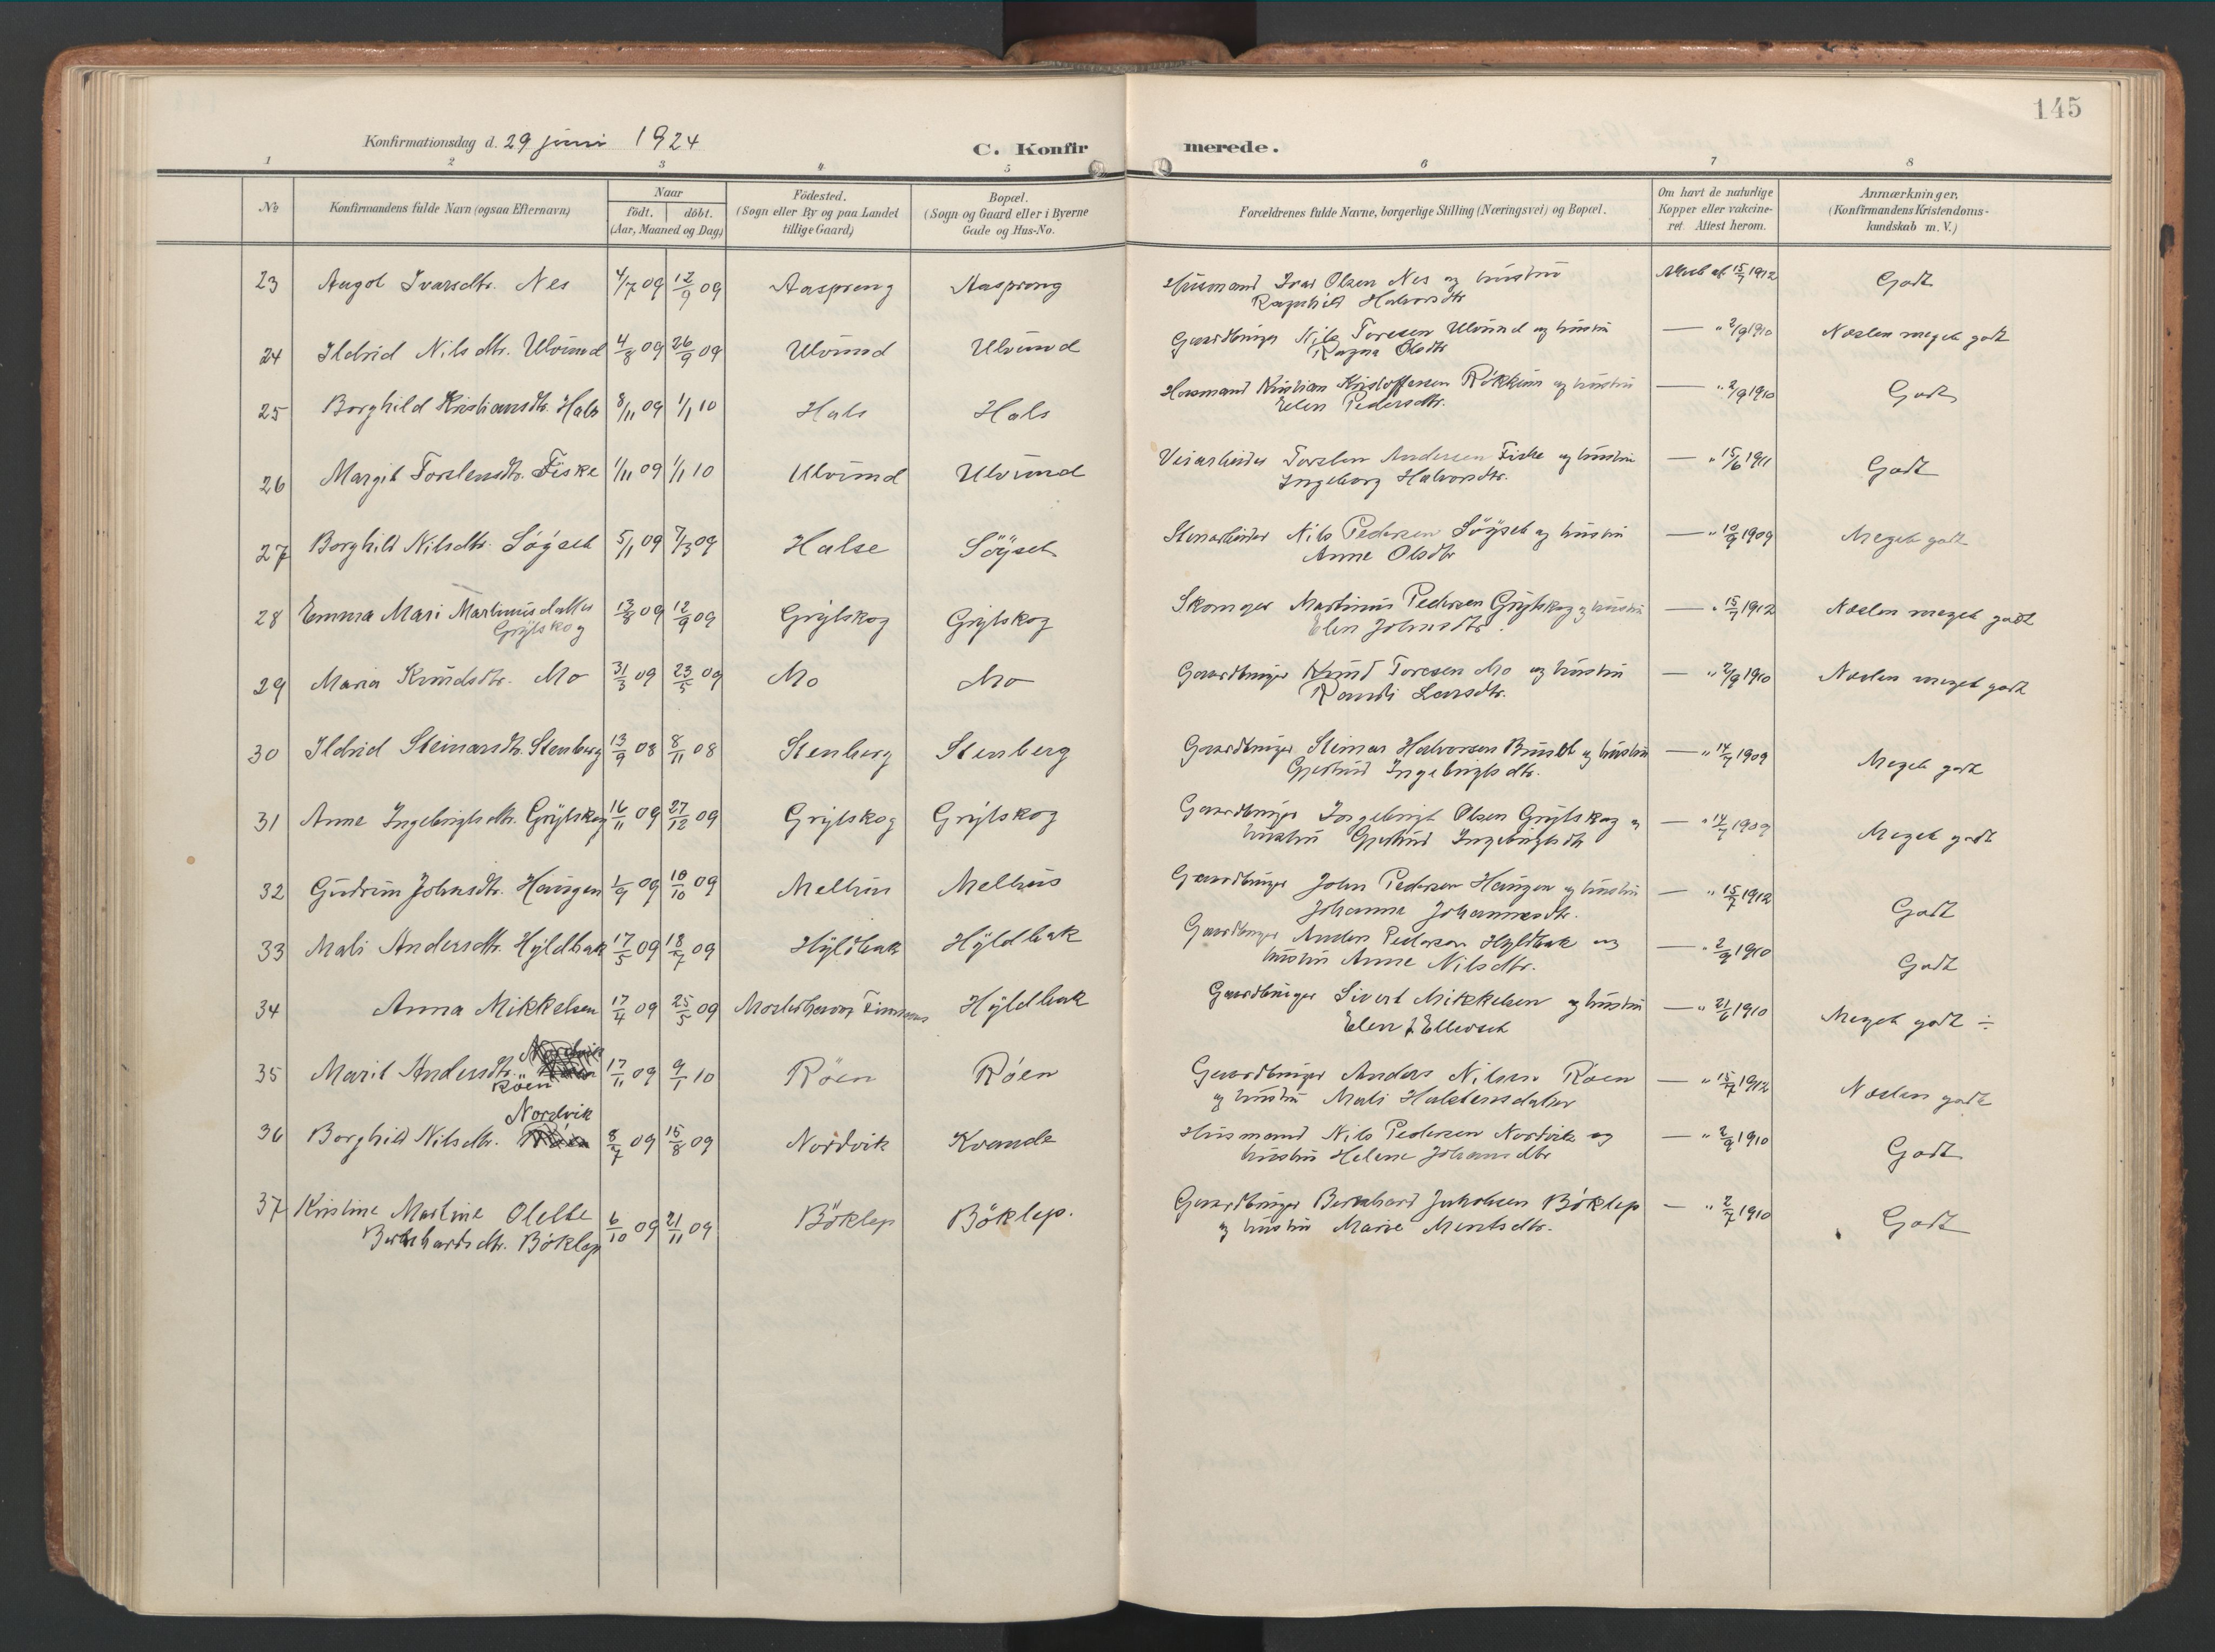 145
Konfirmationsdag d. 29 juni 1924
C. Konfirmerede.
1 2 3 4 5 6 7 8
No
Konfirmandens fulde Navn (ogsaa Efternavn)
Naar
födt. döbt.
(Aar, Maaned og Dag)
Födested.
(Sogn eller By og paa Landet
tillige Gaard)
Bopæl.
(Sogn og Gaard eller i Byerne
Gade og Hus-No.
Forældrenes fulde Navne, borgerlige Stilling (Næringsvei) og Bopæl.
Om havt de naturlige
Kopper eller vakcine-
ret. Attest herom.
Anmærkninger,
(Konfirmandens Kristendoms-
kundskab m. V.)
23 Ivarsdtr. Nes 4/7 09 12/9 09 Aasprong Aasprong Husmand Ivar Olsen Nes og hustru Attest af 15/7 1912 Godt
Ragnhild Halvorsdtr
24 Ildrid Nilsdtr. Ulvund 4/8 09 26/9 09 Ulvund Ulvund Gaardbruger Nils Toresen Ulvund og hustru — " 2/9 1910 Næsten meget godt
Ragna Olsdtr
25 Borghild Kristiansdtr. Hals 8/11 09 1/1 10 Hals Hals Husmand Kristian Kristoffersen Rökkum og hustru — " 2/9 1910 Godt
Elen Pedersdtr.
26 Margit Torstensdtr. Fiske 1/11 09 1/1 10 Ulvund Ulvund Veiarbeider Torsten Andersen Fiske og hustru — " 15/6 1911 Godt
Ingeborg Halvorsdtr.
27 Borghild Nilsdtr. Söyset 5/1 09 7/3 09 Halse Söyset Stenarbeider Nils Pedersen Söyset og hustru — " 10/9 1909 Meget godt
Anne Olsdtr
28 Emma Mari Martinusdatter 13/8 09 12/9 09 Grytskog Grytskog Skomager Martinus Pedersen Grytskog og hustru — " 15/7 1912 Næsten meget godt
Grytskog Elen Johnsdtr.
29 Maria Knudsdtr. Mo 31/3 09 23/5 09 Mo Mo Gaardbruger Knud Toresen Mo og hustru — " 2/9 1910 Næsten meget godt
Randi Larsdtr.
30 Ildrid Steinarsdtr. Stenberg 13/9 08 8/11 08 Stenberg Stenberg Gaardbruger Steinar Halvorsen Bruset og hustru — " 14/7 1909 Meget godt
Gjertrud Ingebrigtsdtr.
31 Anne Ingebrigtsdtr. Grytskog 16/11 09 27/12 09 Grytskog Grytskog Gaardbruger Ingebrigt Olsen Grytskog og — " 14/7 1909 Meget godt
hustru Gjertrud Ingebrigtsdtr
32 Gudrun Johnsdtr. Haugen 1/9 09 10/10 09 Melhus Melhus Gaardbruger John Pedersen Haugen og hustru — " 15/7 1912 Godt
Johanna Johannesdtr.
33 Mali Andersdtr. Hyldbak 17/5 09 18/7 09 Hyldbak Hyldbak Gaardbruger Anders Pedersen Hyldbak og — " 2/9 1910 Godt
hustru Anne Nilsdtr.
34 Anna Mikkelsen 17/4 09 25/5 09 Hyldbak Gaardbruger Sivert Mikkelsen og hustru — " 21/6 1910 Meget godt ÷
Elen J Ellevset
35 Marit Andersdtr. Nordvik 17/11 09 9/1 10 Röen Röen Gaardbruger Anders Nilsen Röen — " 15/7 1912 Næsten godt
Röen og hustru Mali Halstensdatter
36 Borghild Nilsdtr. Nordvik Röen 8/7 09 15/8 09 Nordvik Kvande Husmand Nils Pedersen Nordvik og — " 2/9 1910 Godt
hustru Helene Johansdtr
37 Kristine Martine Olette 6/10 09 21/11 09 Böklep Böklep. Gaardbruger Bernhard Jakobsen Böklep — " 2/7 1910 Godt
Bernhardsdtr. Böklep og hustru Marie Mentsdtr.